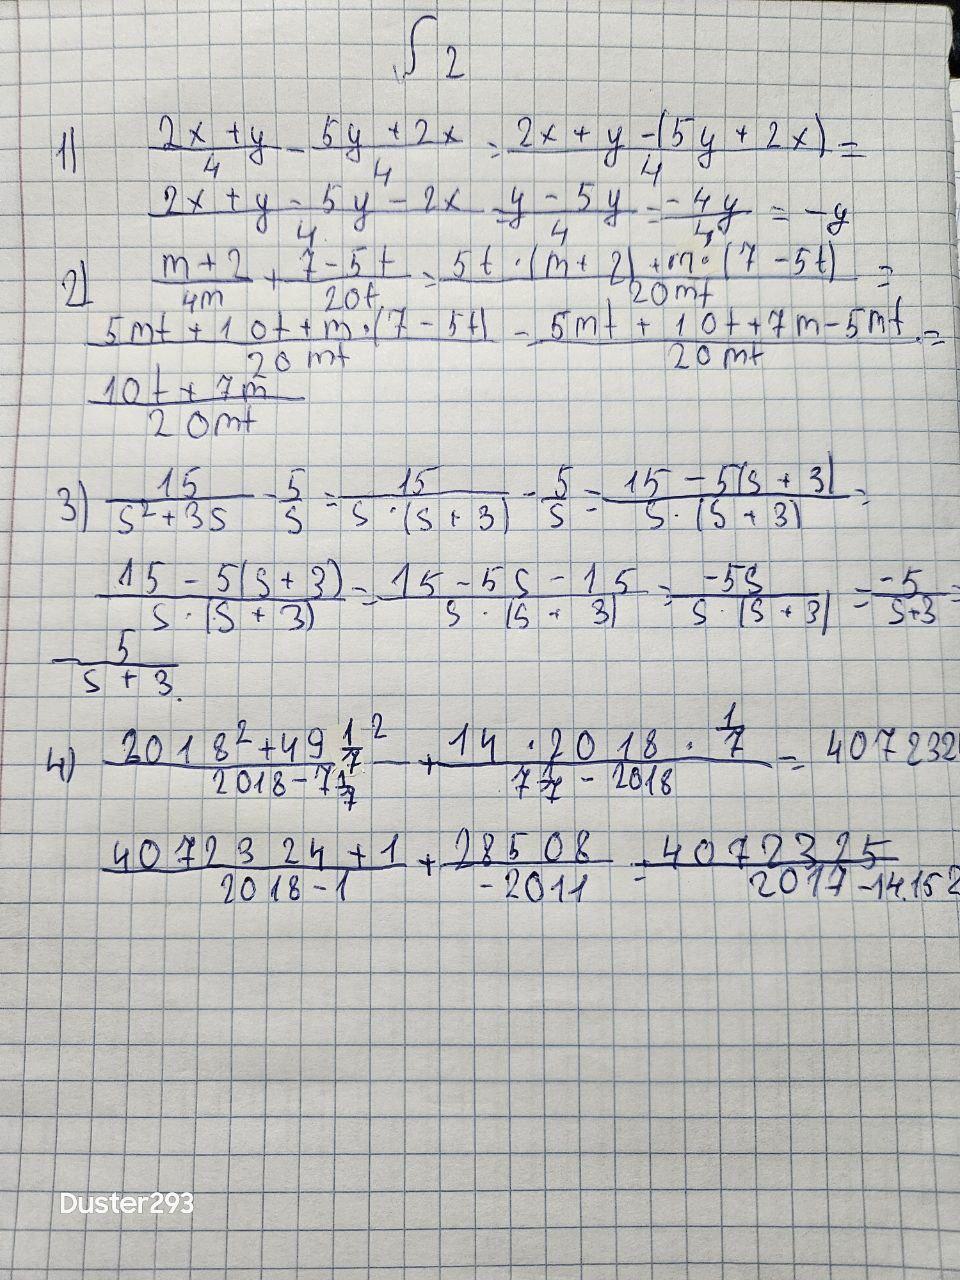 ∫ 2
1) (2x + y)/4 - (5y + 2x)/4 = (2x + y - (5y + 2x))/4 =
(2x + y - 5y - 2x)/4 = (y - 5y)/4 = (-4y)/4 = -y
2) (m + 2)/4m + (7 - 5t)/20t = (5t · (m + 2) + m · (7 - 5t))/20mt =
(5mt + 10t + m · (7 - 5t))/20mt - (5mt + 10t + 7m - 5mt)/20mt =
(10t + 7m)/20mt
3) 15/(s² + 3s) - 5/s = 15/(s · (s + 3)) - 5/s = (15 - 5(s + 3))/(s · (s + 3)) =
(15 - 5(s + 3))/(s · (s + 3)) = (15 - 5s - 15)/(s · (s + 3)) = (-5s)/(s · (s + 3)) = (-5)/(s + 3) =
- 5/(s + 3).
4) (2018² + 49 1/7²)/(2018 - 7 1/7) + (14 · 2018 · 1/7)/(7 1/7 - 2018) = 407232
(4072324 + 1)/(2018 - 1) + 28508/(-2011) = 4072325/2017 - 14.152
Duster293